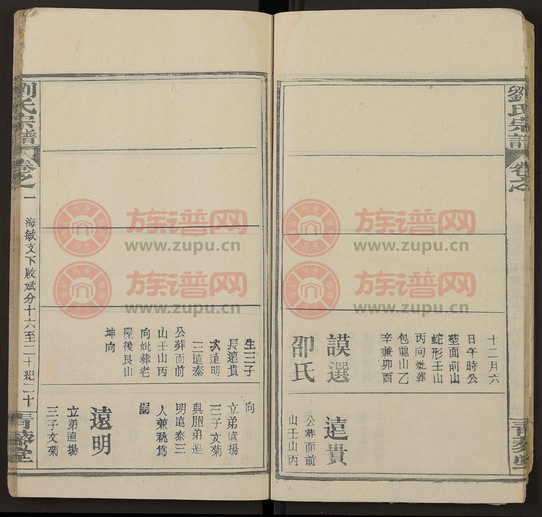 劉氏宗譜
卷之
十二月六
日午時公
塟面前山
蛇形壬山
丙向妣葬
包龍山乙
辛兼卯酉
謨選
邵氏
遠貴
公葬面前
山壬山丙
生三子
長遠貴
次遠明
三遠泰
公葬面前
山壬山丙
向妣葬老
屋後艮山
坤向
向
立弟遠揚
與胞弟遠
明遠泰三
人兼祧為
嗣
遠明
立弟遠揚
三子文菊
劉氏宗譜
卷之一
海敏支下殷斌分十六至二十紀二十
青藜堂
族谱网
www.zupu.cn
族谱网
www.zupu.cn
族谱网
www.zupu.cn
族谱网
www.zupu.cn